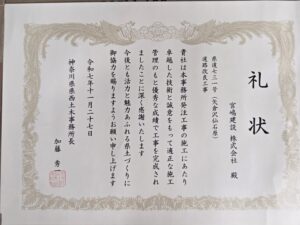 礼状
宮嶋建設 株式会社 殿
県道七三一号(矢倉沢仙石原)
道路改良工事
貴社は本事務所発注工事の施工にあたり
卓越した技術と誠意をもって適正な施工
管理のもと優秀な成績で工事を完成され
ましたことに深く感謝いたします
今後とも活力と魅力あふれる県土づくりに
御協力を賜りますようお願い申し上げます
令和七年十一月二十七日
神奈川県県西土木事務所長
加藤 秀